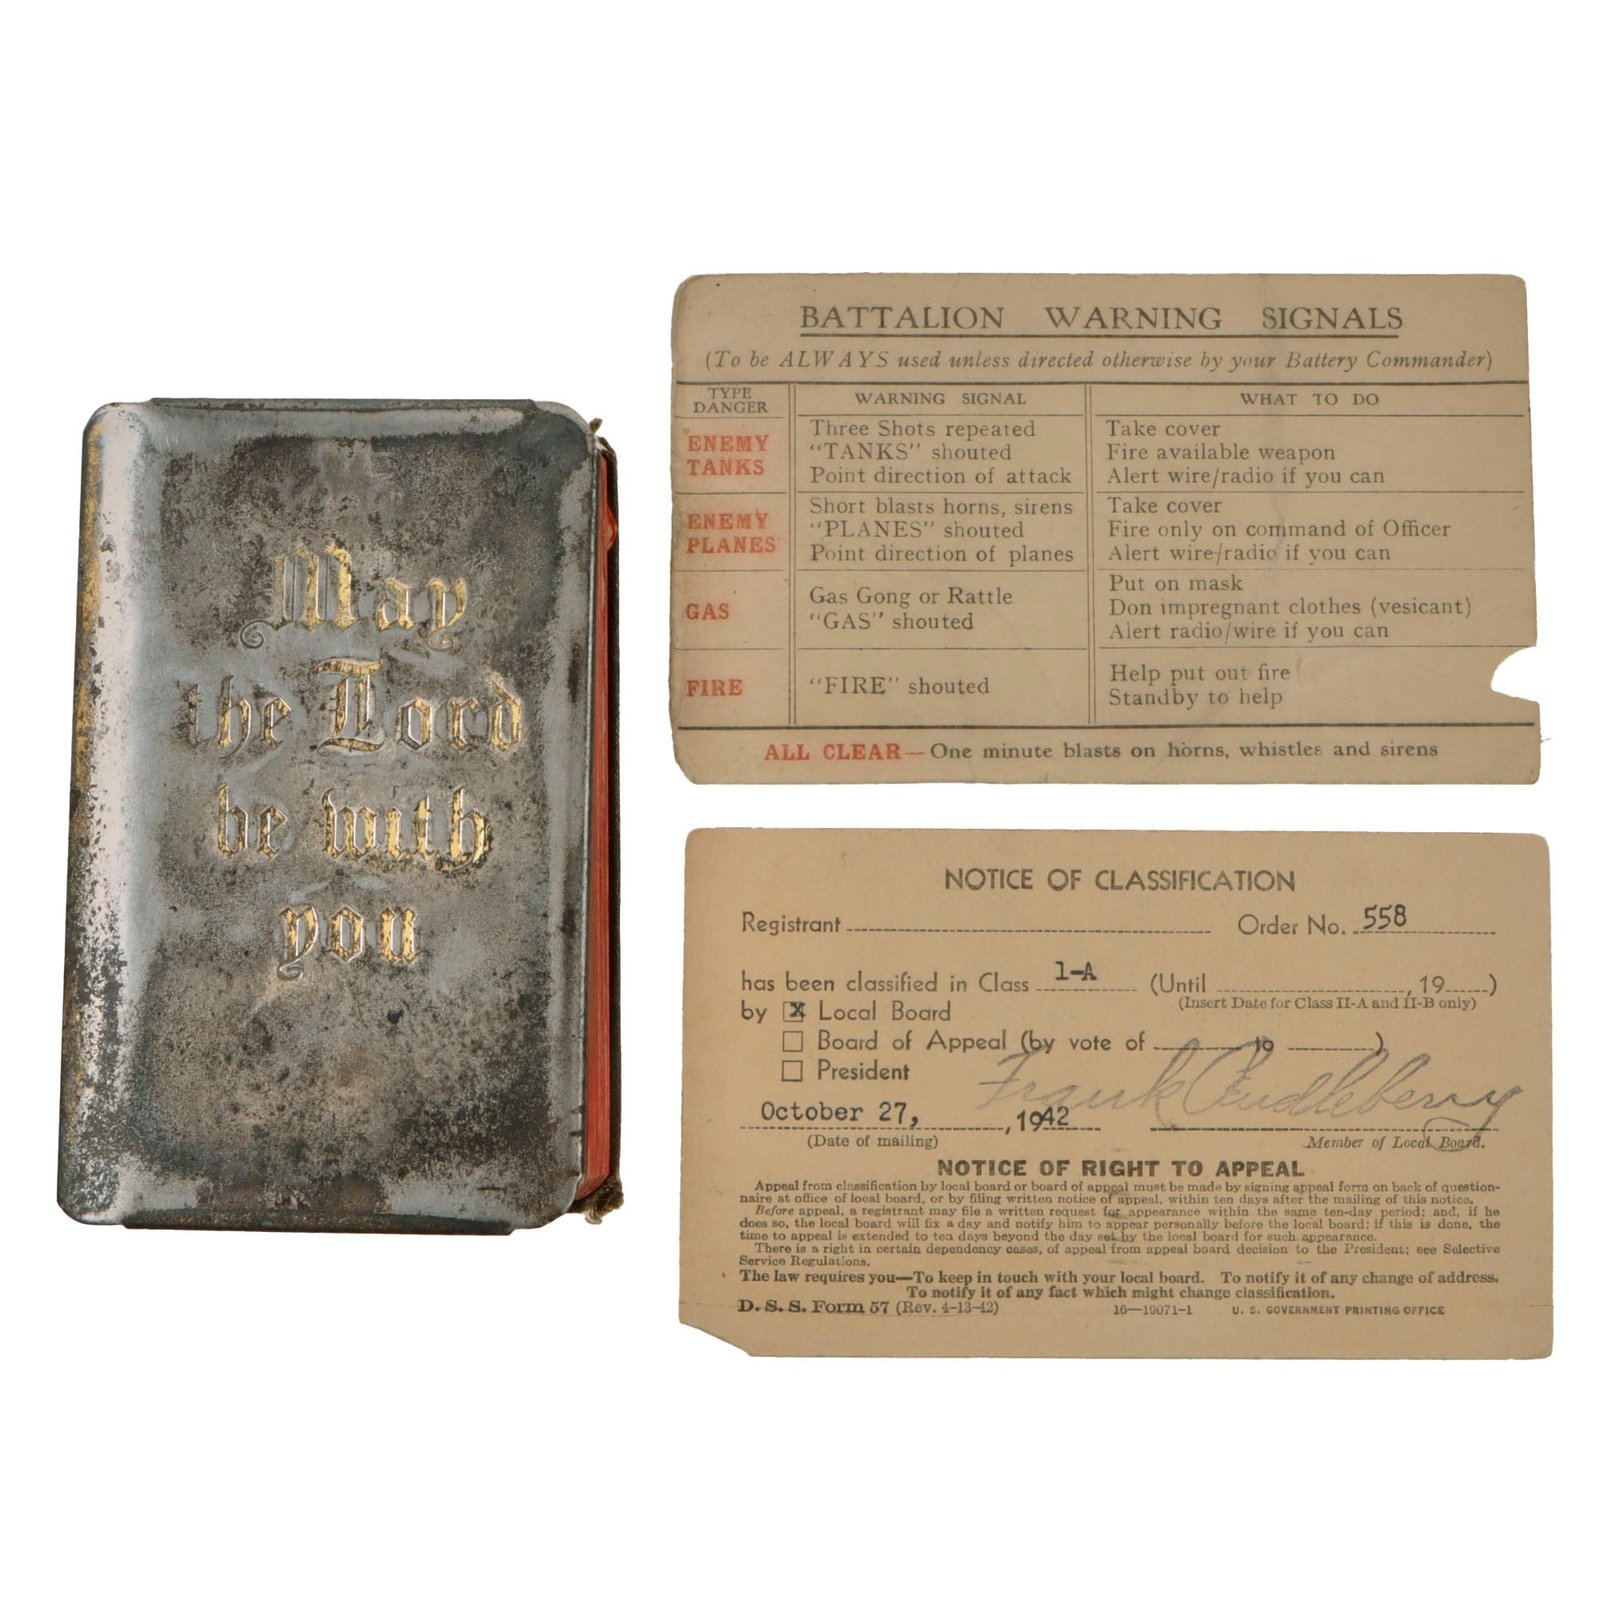 May
the Lord
be with
you
BATTALION WARNING SIGNALS
(To be ALWAYS used unless directed otherwise by your Battery Commander)
TYPE DANGER
WARNING SIGNAL
WHAT TO DO
ENEMY
TANKS
Three Shots repeated
"TANKS" shouted
Point direction of attack
Take cover
Fire available weapon
Alert wire/radio if you can
ENEMY
PLANES
Short blasts horns, sirens
"PLANES" shouted
Point direction of planes
Take cover
Fire only on command of Officer
Alert wire/radio if you can
GAS
Gas Gong or Rattle
"GAS" shouted
Put on mask
Don impregnant clothes (vesicant)
Alert radio/wire if you can
FIRE
"FIRE" shouted
Help put out fire
Standby to help
ALL CLEAR—One minute blasts on horns, whistles and sirens
NOTICE OF CLASSIFICATION
Registrant Order No. 558
has been classified in Class 1-A (Until , 19 )
(Insert Date for Class II-A and II-B only)
by ☒ Local Board
☐ Board of Appeal (by vote of to )
☐ President
Frank
October 27, , 1942
(Date of mailing) Member of Local Board.
NOTICE OF RIGHT TO APPEAL
Appeal from classification by local board or board of appeal must be made by signing appeal form on back of question-
naire at office of local board, or by filing written notice of appeal, within ten days after the mailing of this notice.
Before appeal, a registrant may file a written request for appearance within the same ten-day period; and, if he
does so, the local board will fix a day and notify him to appear personally before the local board; if this is done, the
time to appeal is extended to ten days beyond the day set by the local board for such appearance.
There is a right in certain dependency cases, of appeal from appeal board decision to the President; see Selective
Service Regulations.
The law requires you—To keep in touch with your local board. To notify it of any change of address.
To notify it of any fact which might change classification.
D. S. S. Form 57 (Rev. 4-13-42) 16—19071-1 U. S. GOVERNMENT PRINTING OFFICE